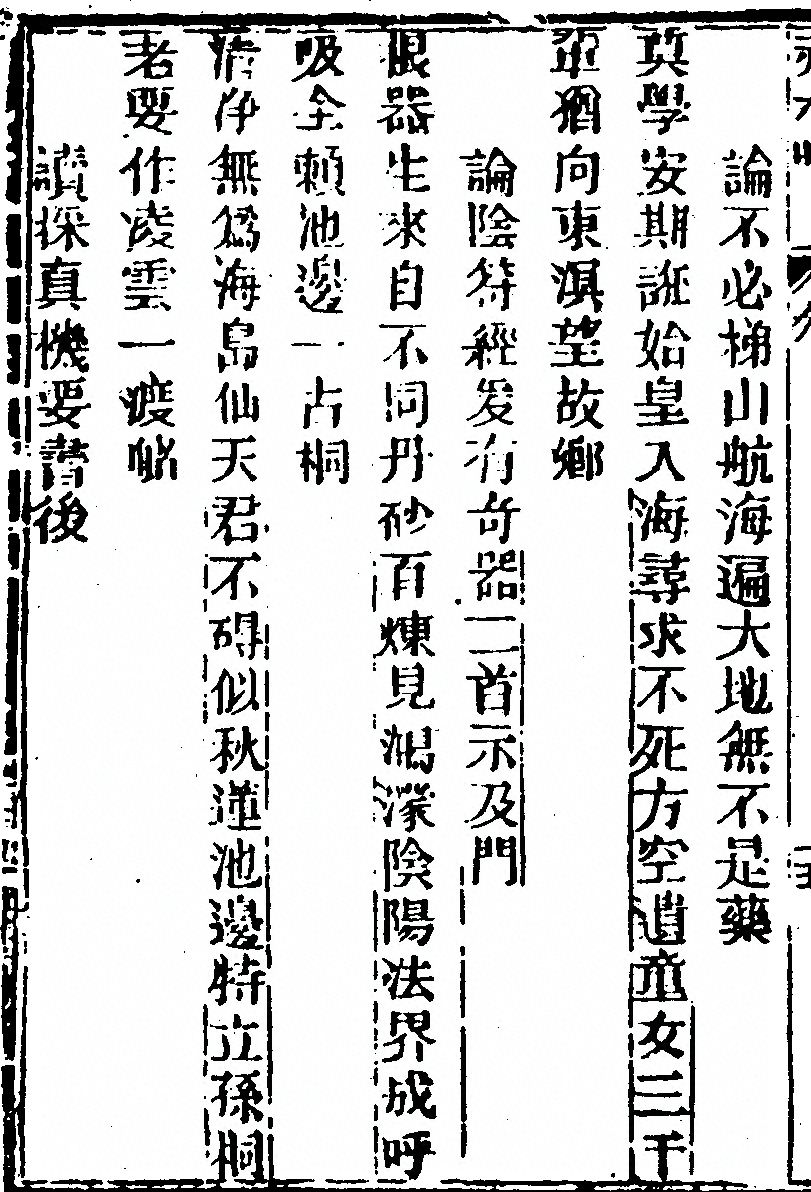 論不必梯山航海遍大地無不是藥
莫學安期誑始皇入海尋求不死方空遺童女三千
輩猶向東溟望故鄉
論陰符經爰有奇器二首示及門
根器生來自不同丹砂百煉見鴻濛陰陽法界成呼
吸全賴池邊一古桐
清净無爲海島仙天君不碍似秋蓮池邊特立孫桐
老要作凌雲一渡船
讀採真機要書後